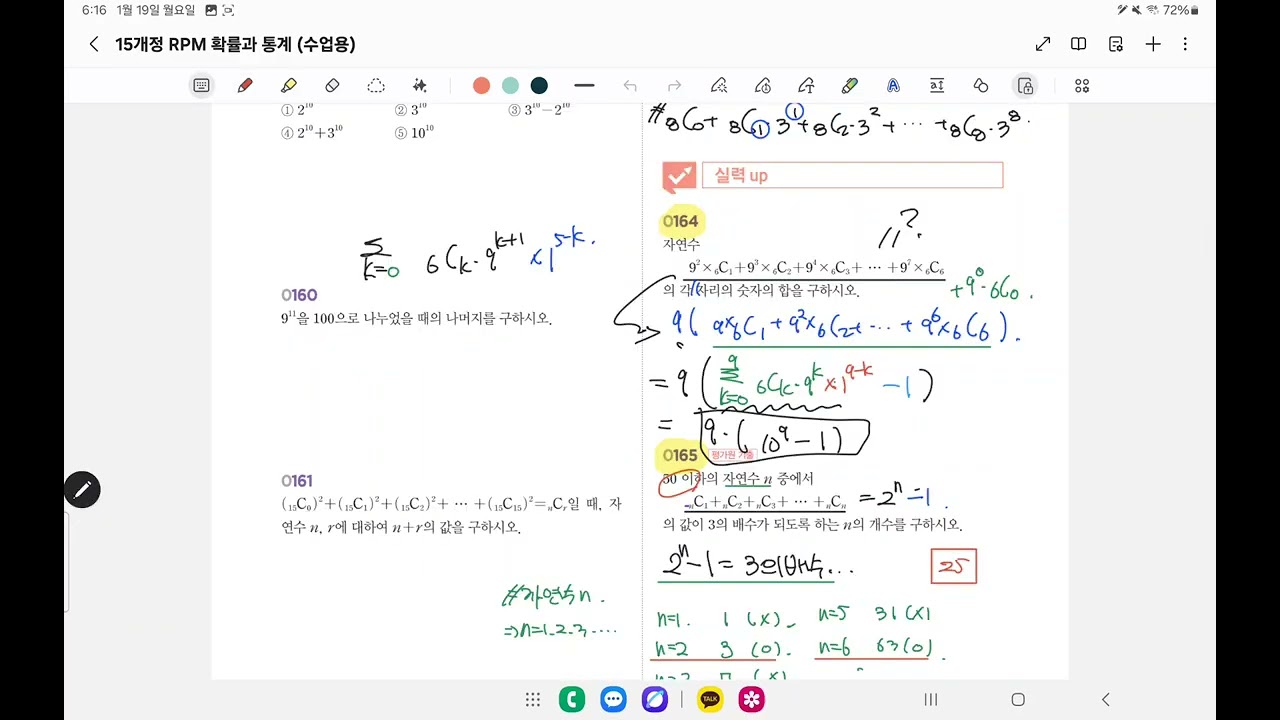 6:16 1월 19일 월요일 72%
15개정 RPM 확률과 통계 (수업용)
① 2¹⁰ ② 3¹⁰ ③ 3¹⁰−2¹⁰
④ 2¹⁰+3¹⁰ ⑤ 10¹⁰
Σ k=0 ₆Cₖ · 9ᵏ⁺¹ ×1⁵⁻ᵏ.
0160
9¹¹을 100으로 나누었을 때의 나머지를 구하시오.
0161
(₁₅C₀)²+(₁₅C₁)²+(₁₅C₂)²+ ⋯ +(₁₅C₁₅)²=ₙCᵣ일 때, 자
연수 n, r에 대하여 n+r의 값을 구하시오.
#자연수 n.
⇒n=1. 2. 3. ....
# ₈C₀+ ₈C₁·3¹+₈C₂·3²+ ⋯ +₈C₈·3⁸.
실력 up
0164
자연수
11?.
9²×₆C₁+9³×₆C₂+9⁴×₆C₃+ ⋯ +9⁷×₆C₆
의 각 자리의 숫자의 합을 구하시오.
+9⁰·₆C₀.
9( 9×₆C₁+9²×₆C₂+ ⋯ + 9⁶×₆C₆).
= 9( Σ k=0 9 ₆Cₖ·9ᵏ×1⁹⁻ᵏ −1)
= 9·(10⁹−1)
0165 평가원 기출
30 이하의 자연수 n 중에서
ₙC₁+ₙC₂+ₙC₃+ ⋯ +ₙCₙ =2ⁿ−1.
의 값이 3의 배수가 되도록 하는 n의 개수를 구하시오.
2ⁿ−1= 3의배수...
25
n=1. 1 (X). n=5 31 (X)
n=2 3 (O). n=6 63 (O).
TALK